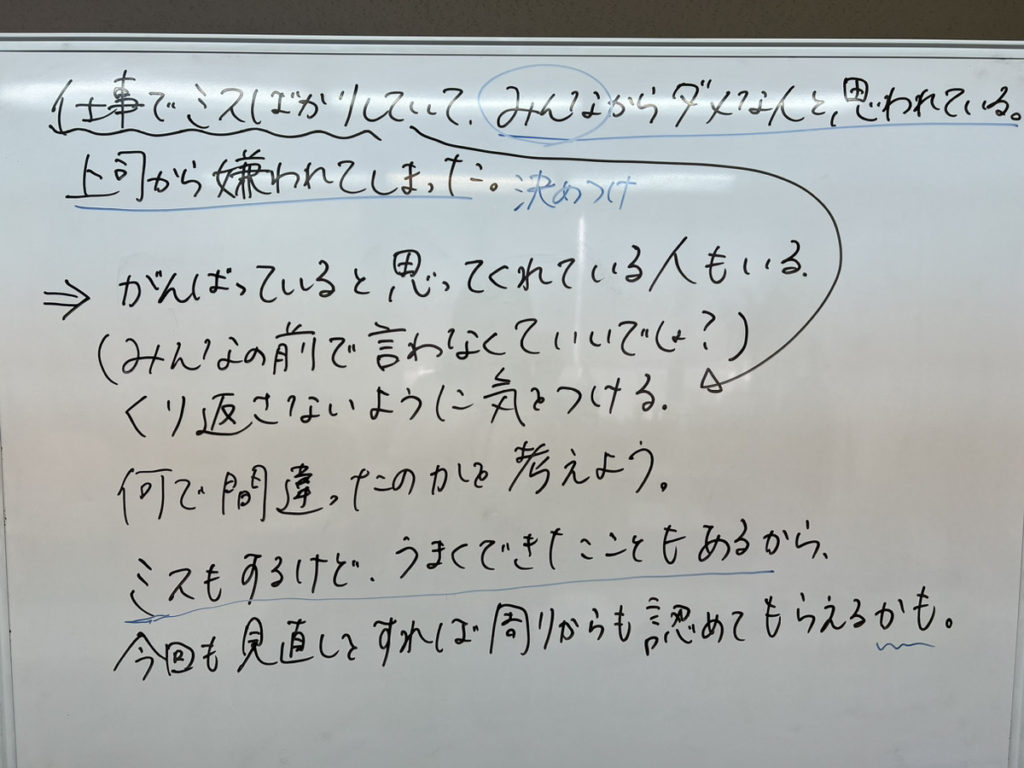 仕事でミスばかりしていて、みんなからダメな人と、思われている。
上司から嫌われてしまった。
決めつけ
⇒ がんばっていると思ってくれている人もいる.
(みんなの前で言わなくていいでしょ?)
くり返さないように気をつける.
何で間違ったのかを考えよう。
ミスもするけど、うまくできたこともあるから、
今回も見直しをすれば周りからも認めてもらえるかも。